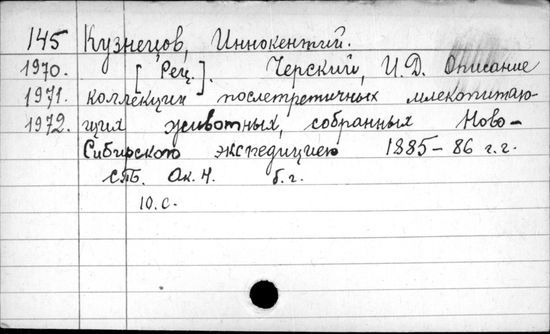 145 Кузнецов, Иннокентий.
1970. [Рец.]. Черский, И.Д. Описание
1971. коллекции послетретичных млекопитаю-
1972. щих животных, собранных Ново-
Сибирскою экспедициею 1885-86 г.г.
СПб. Ак. Н. б.г.
10.с.